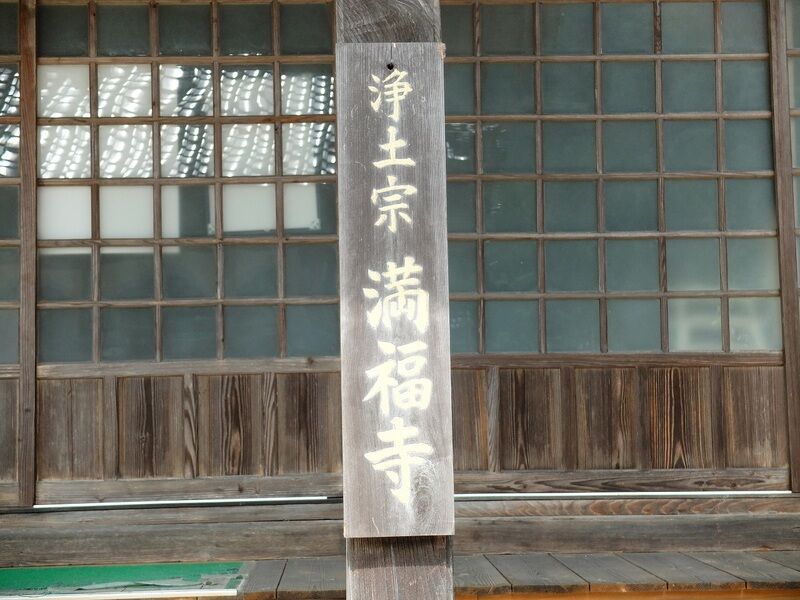 浄土宗 満福寺